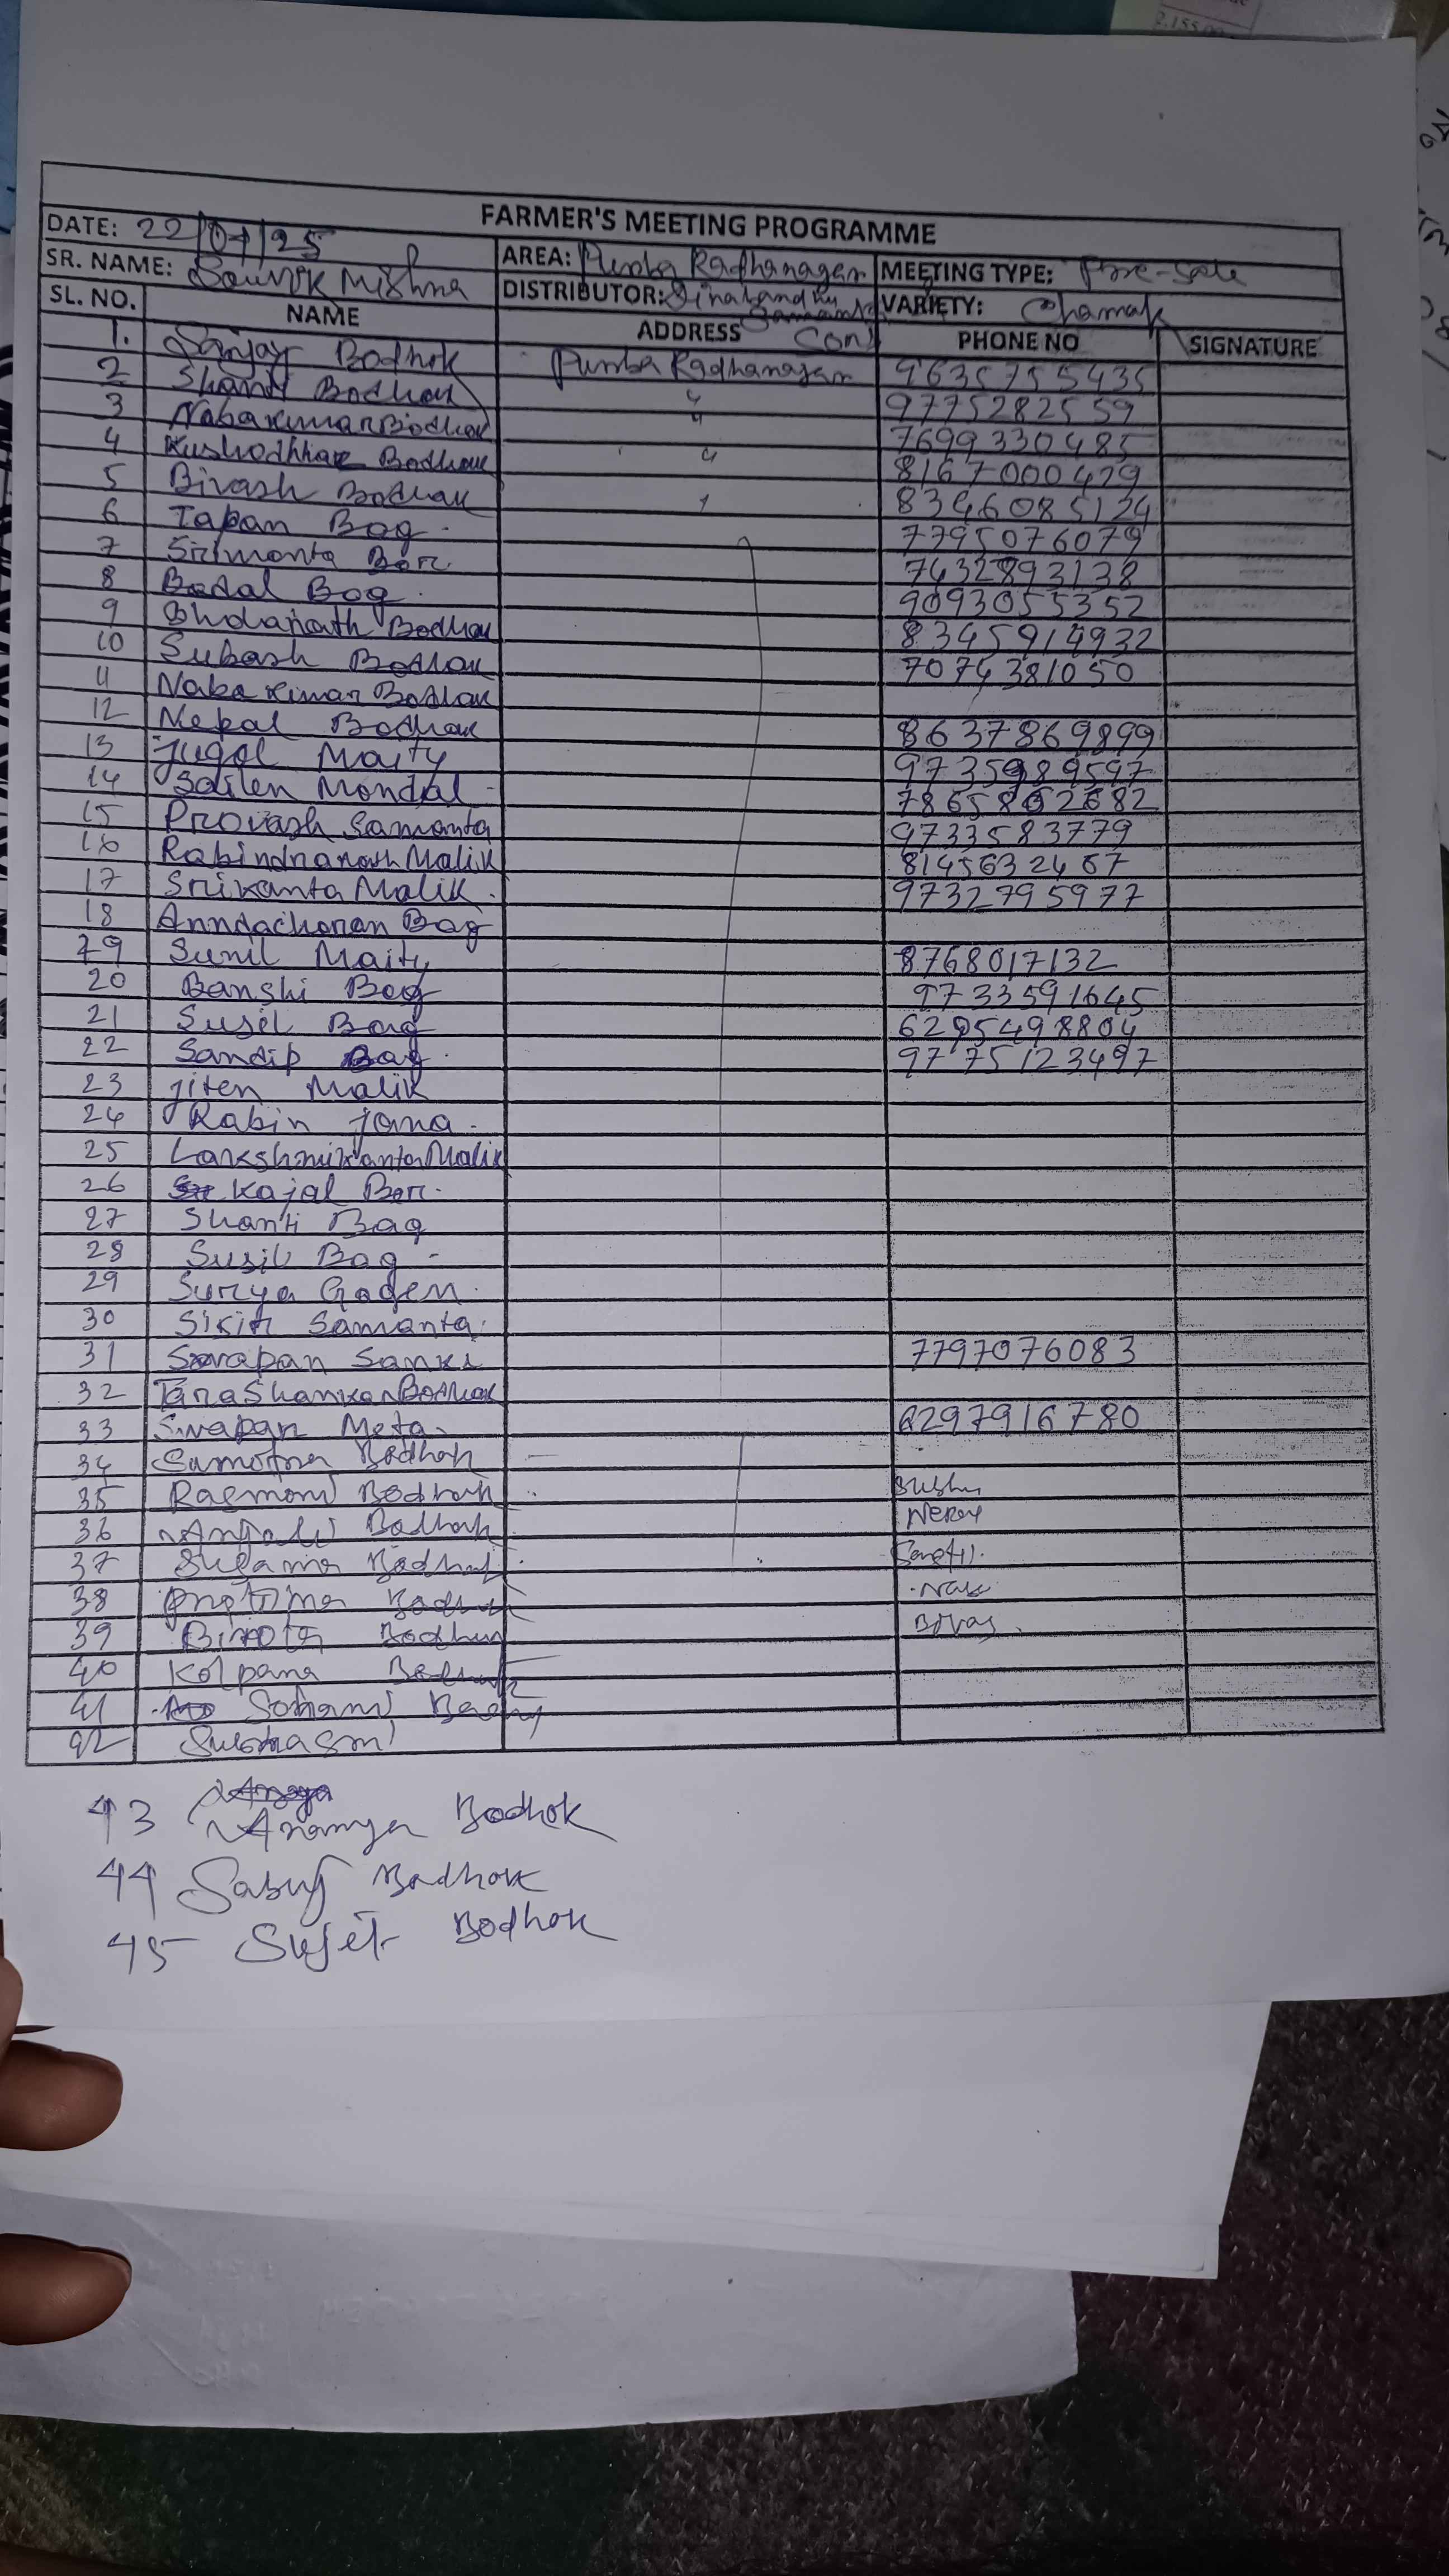 FARMER'S MEETING PROGRAMME
DATE: 22/07/25 AREA: Purba Radhanagar MEETING TYPE: Pre-Sale
SR. NAME: Souvik Mishra DISTRIBUTOR: Dinabandhu Samanta VARIETY: Chamak
SL. NO. NAME ADDRESS PHONE NO SIGNATURE
1. Sanjay Bodhok Purba Radhanagar 9635755435
2 Shanti Bodhak " 9775282559
3 Nabakumar Bodhak " 7699330485
4 Kushodhhar Bodhak " 8167000429
5 Bivash Bodhak 8346085124
6 Tapan Bag 7795076079
7 Srimonta Ber 7432893138
8 Badal Bag 9093055352
9 Bholanath Bodhak 8345914932
10 Subash Bodhak 7074381050
11 Naba Kumar Bodhak
12 Nepal Bodhak 8637869899
13 Jugal Maity 9735989597
14 Sailen Mondal 7865862682
15 Provash Samanta 9733583779
16 Rabindranath Malik 8145632467
17 Srikanta Malik 9732795977
18 Anndacharan Bag
19 Sunil Maity 8768017132
20 Banshi Bag 9733591645
21 Susil Bag 6295498804
22 Sandip Bag 9775123497
23 Jiten Malik
24 Rabin Jana
25 Lakshmikanta Malik
26 Kajal Ber
27 Shanti Bag
28 Susil Bag
29 Surya Gayen
30 Sisir Samanta
31 Swapan Sanki 7797076083
32 Tarashankar Bodhak
33 Swapan Meta 6297916780
34 Bodhok
35 Bodhok
36 Anjali Bodhok
37 Bodhok
38 Protima Bodhok
39 Bodhok
40 Kolpana
41
42
43 Ananya Bodhok
44 Sabuj Bodhok
45 Sujit Bodhok